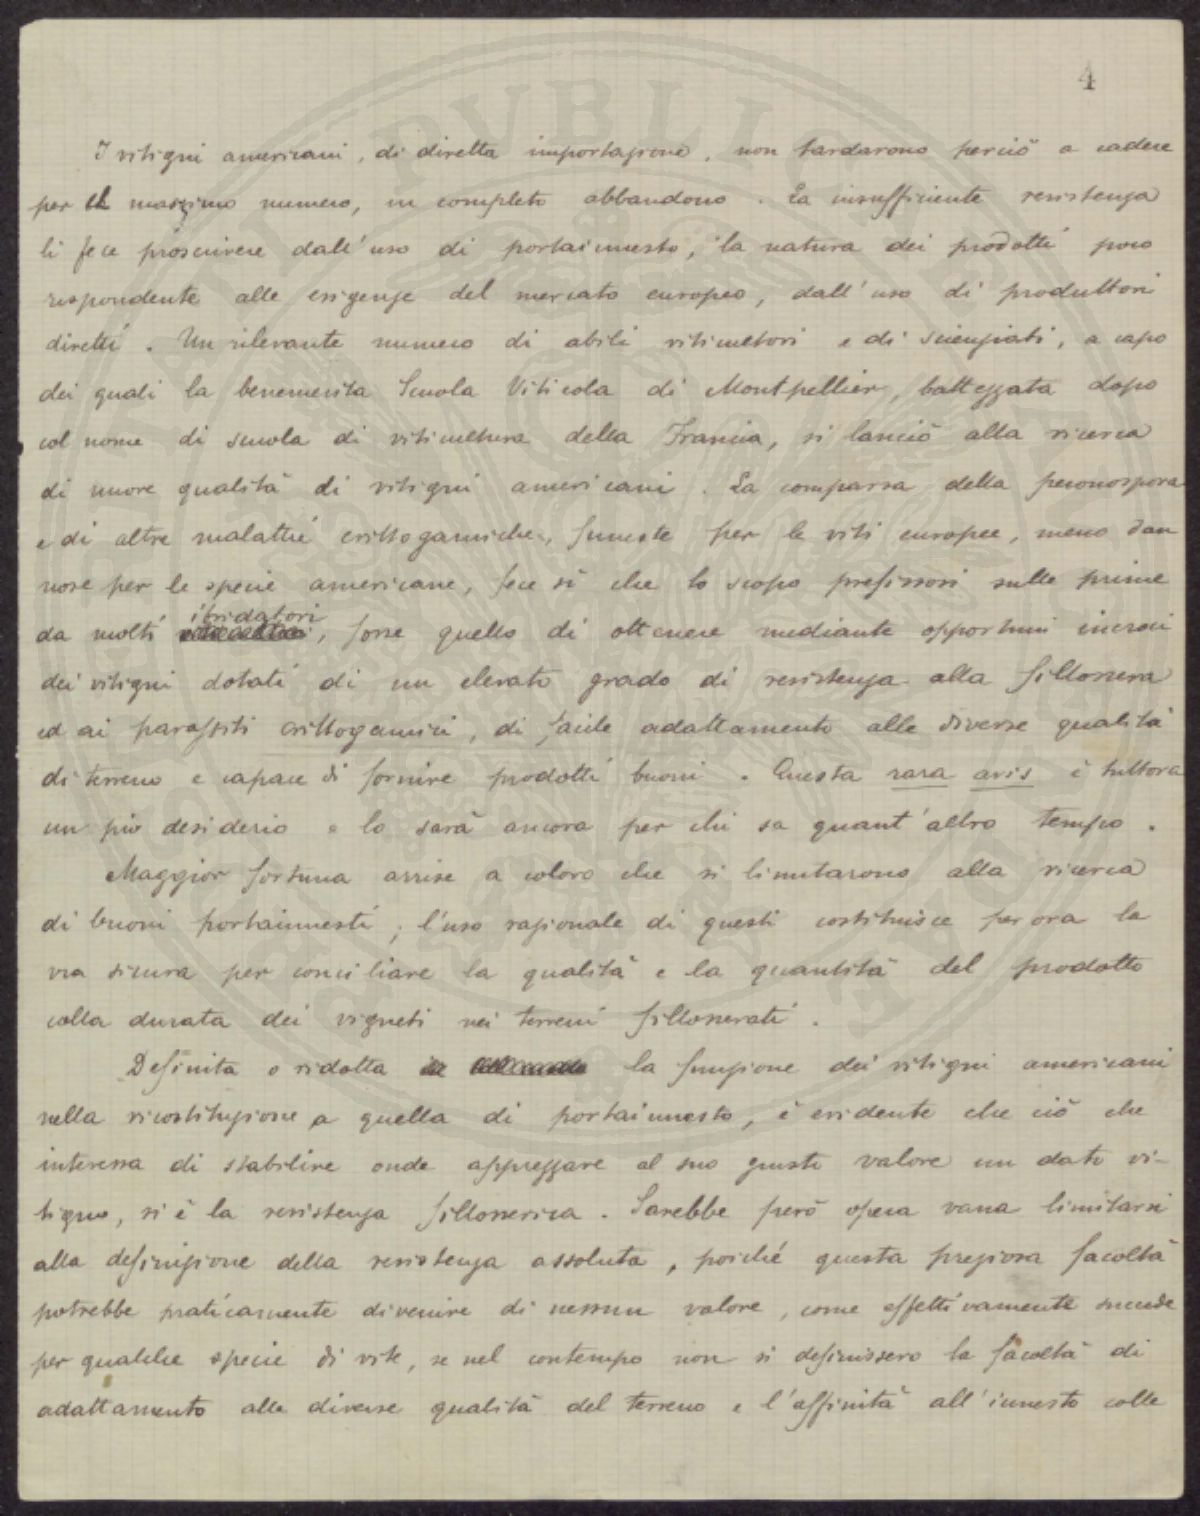 4
I vitigni americani, di diretta importazione, non tardarono perciò a cadere
per il maszimo numero, in completo abbandono. La insufficiente resistenza
li fece proscrivere dall'uso di portainnesto, la natura dei prodotti poco
rispondente alle esigenze del mercato europeo, dall'uso di produttori
diretti. Un rilevante numero di abili viticultori e di scienziati, a capo
dei quali la benemerita Scuola Viticola di Montpellier, battezzata dopo
col nome di scuola di viticultura della Francia, si lanciò alla ricerca
di nuove qualità di vitigni americani. La comparsa della peronospora
e di altre malattie crittogamiche, funeste per le viti europee, meno dan
nose per le specie americane, fece sì che lo scopo prefissosi sulle prime
ibridatori
da molti , forse quello di ottenere mediante opportuni incroci
dei vitigni dotati di un elevato grado di resistenza alla fillossera
ed ai parassiti crittogamici, di facile adattamento alle diverse qualità
di terreno e capace di fornire prodotti buoni. Questa rara avis è tuttora
un pio desiderio e lo sarà ancora per chi sa quant'altro tempo.
Maggior fortuna arrise a coloro che si limitarono alla ricerca
di buoni portainnesti; l'uso razionale di questi costituisce per ora la
via sicura per conciliare la qualità e la quantità del prodotto
colla durata dei vigneti nei terreni fillosserati.
Definita o ridotta la funzione dei vitigni americani
nella ricostituzione a quella di portainnesto, è evidente che ciò che
interessa di stabilire onde apprezzare al suo giusto valore un dato vi-
tigno, si è la resistenza fillosserica. Sarebbe però opera vana limitarsi
alla definizione della resistenza assoluta, poiché questa preziosa facoltà
potrebbe praticamente divenire di nessun valore, come effettivamente succede
per qualche specie di vite, se nel contempo non si definissero la facoltà di
adattamento alle diverse qualità del terreno e l'affinità all'innesto colle